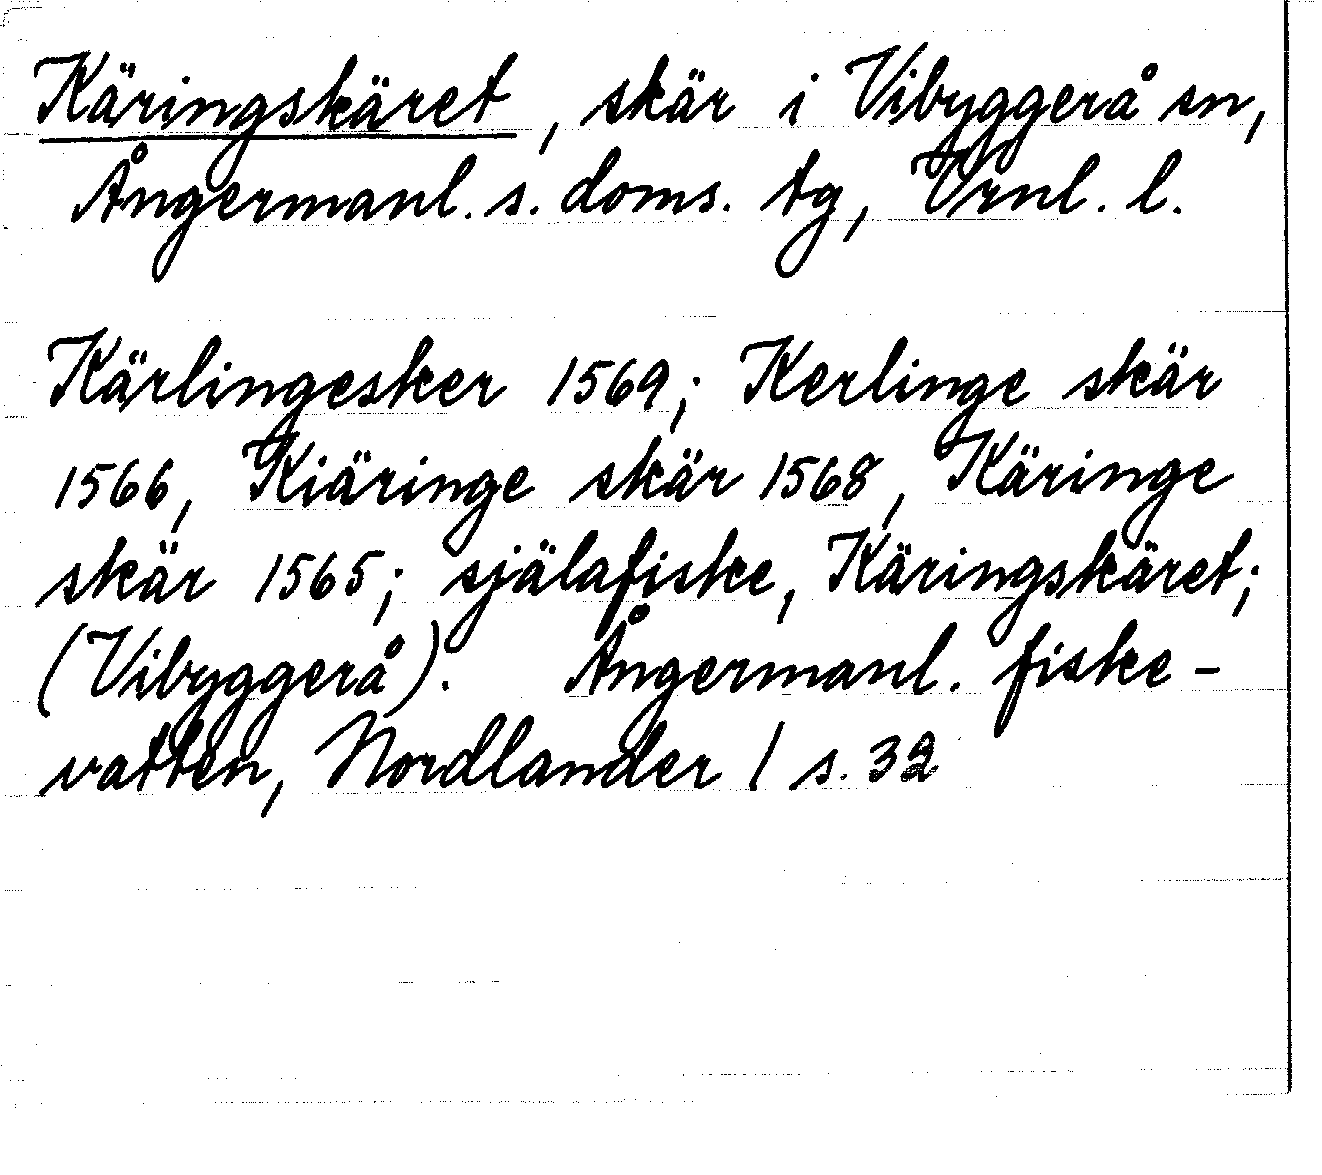 Käringskäret, skär i Vibyggerå sn,
Ångermanl. s. doms. tg, Vrnl. l.
Kärlingesker 1569; Kerlinge skär
1566, Kiäringe skär 1568, Käringe
skär 1565; själafiske, Käringskäret;
(Vibyggerå). Ångermanl. fiske-
vatten, Nordlander 1 s. 32